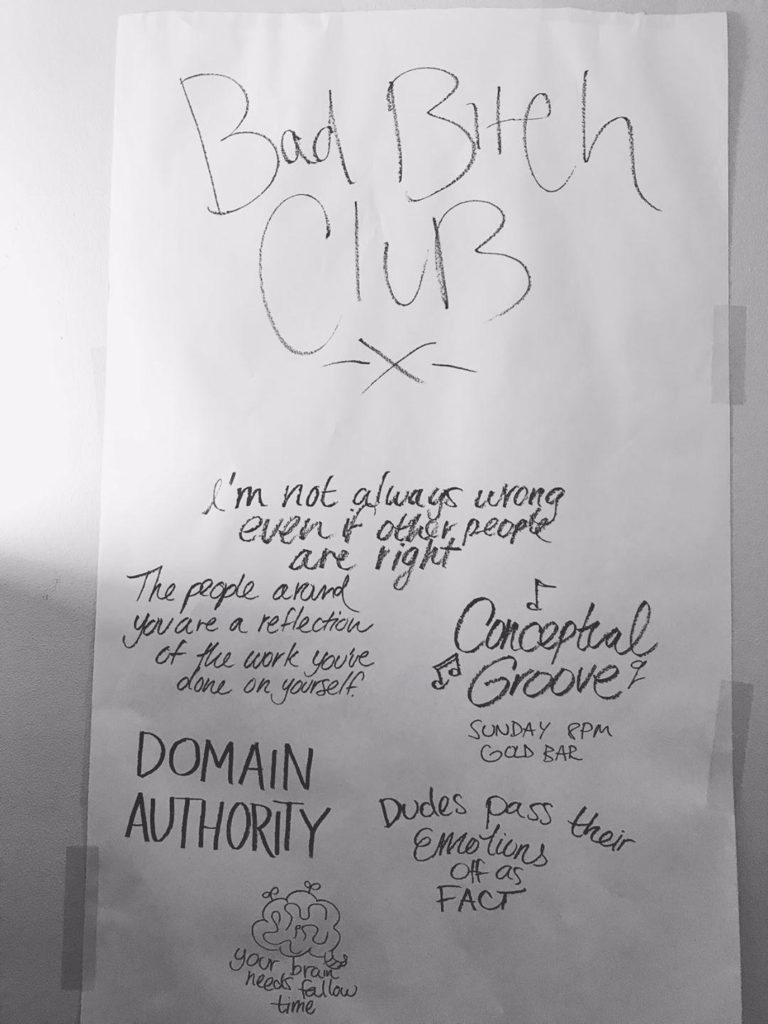 Bad Bitch
Club
I'm not always wrong
even if other people
are right
The people around
you are a reflection
of the work you've
done on yourself.
Conceptual
Groove
SUNDAY 8PM
GOLD BAR
DOMAIN
AUTHORITY
Dudes pass their
Emotions
off as
FACT
your brain
needs fallow
time